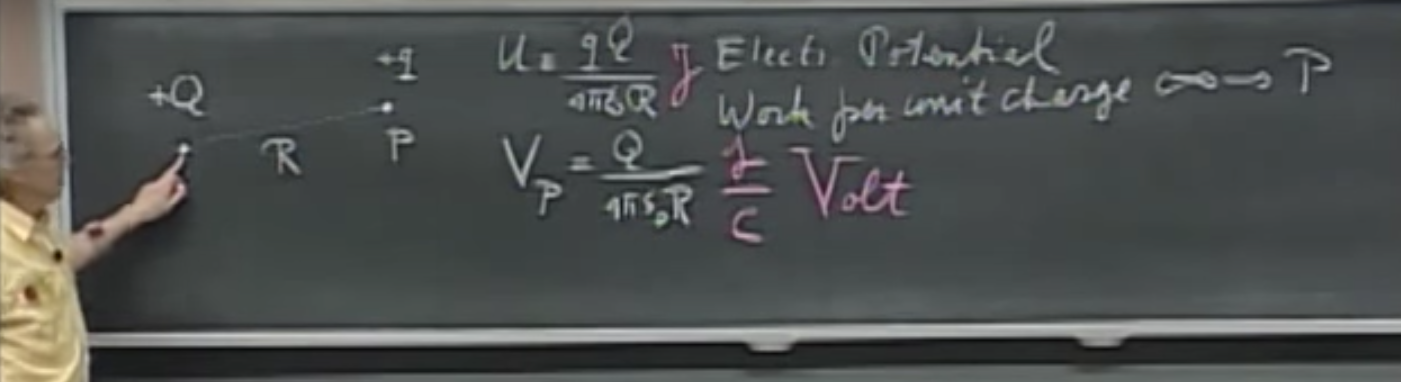 +Q
+q
R
P
U = qQ / 4πε₀R J
Elect. Potential
Work per unit charge ∞ → P
V_P = Q / 4πε₀R J/C Volt